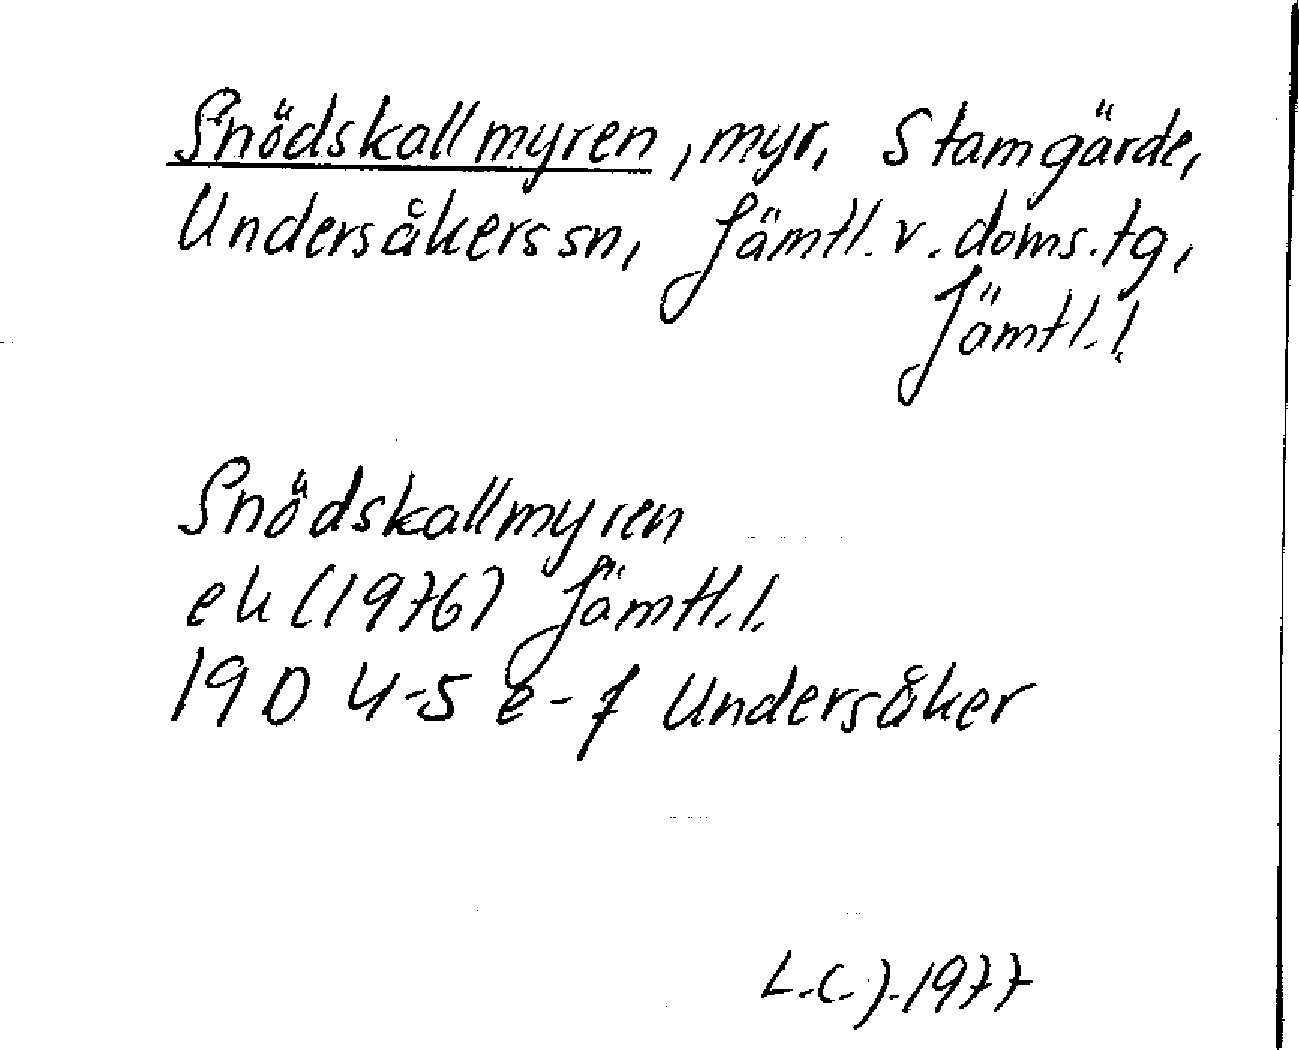 Snödskallmyren, myr, Stamgärde,
Undersåkers sn, Jämtl. v. doms. tg,
Jämtl. l.
Snödskallmyren
ek (1976) Jämtl. l.
19D 4-5 e-f Undersåker
L.C.J. 1977